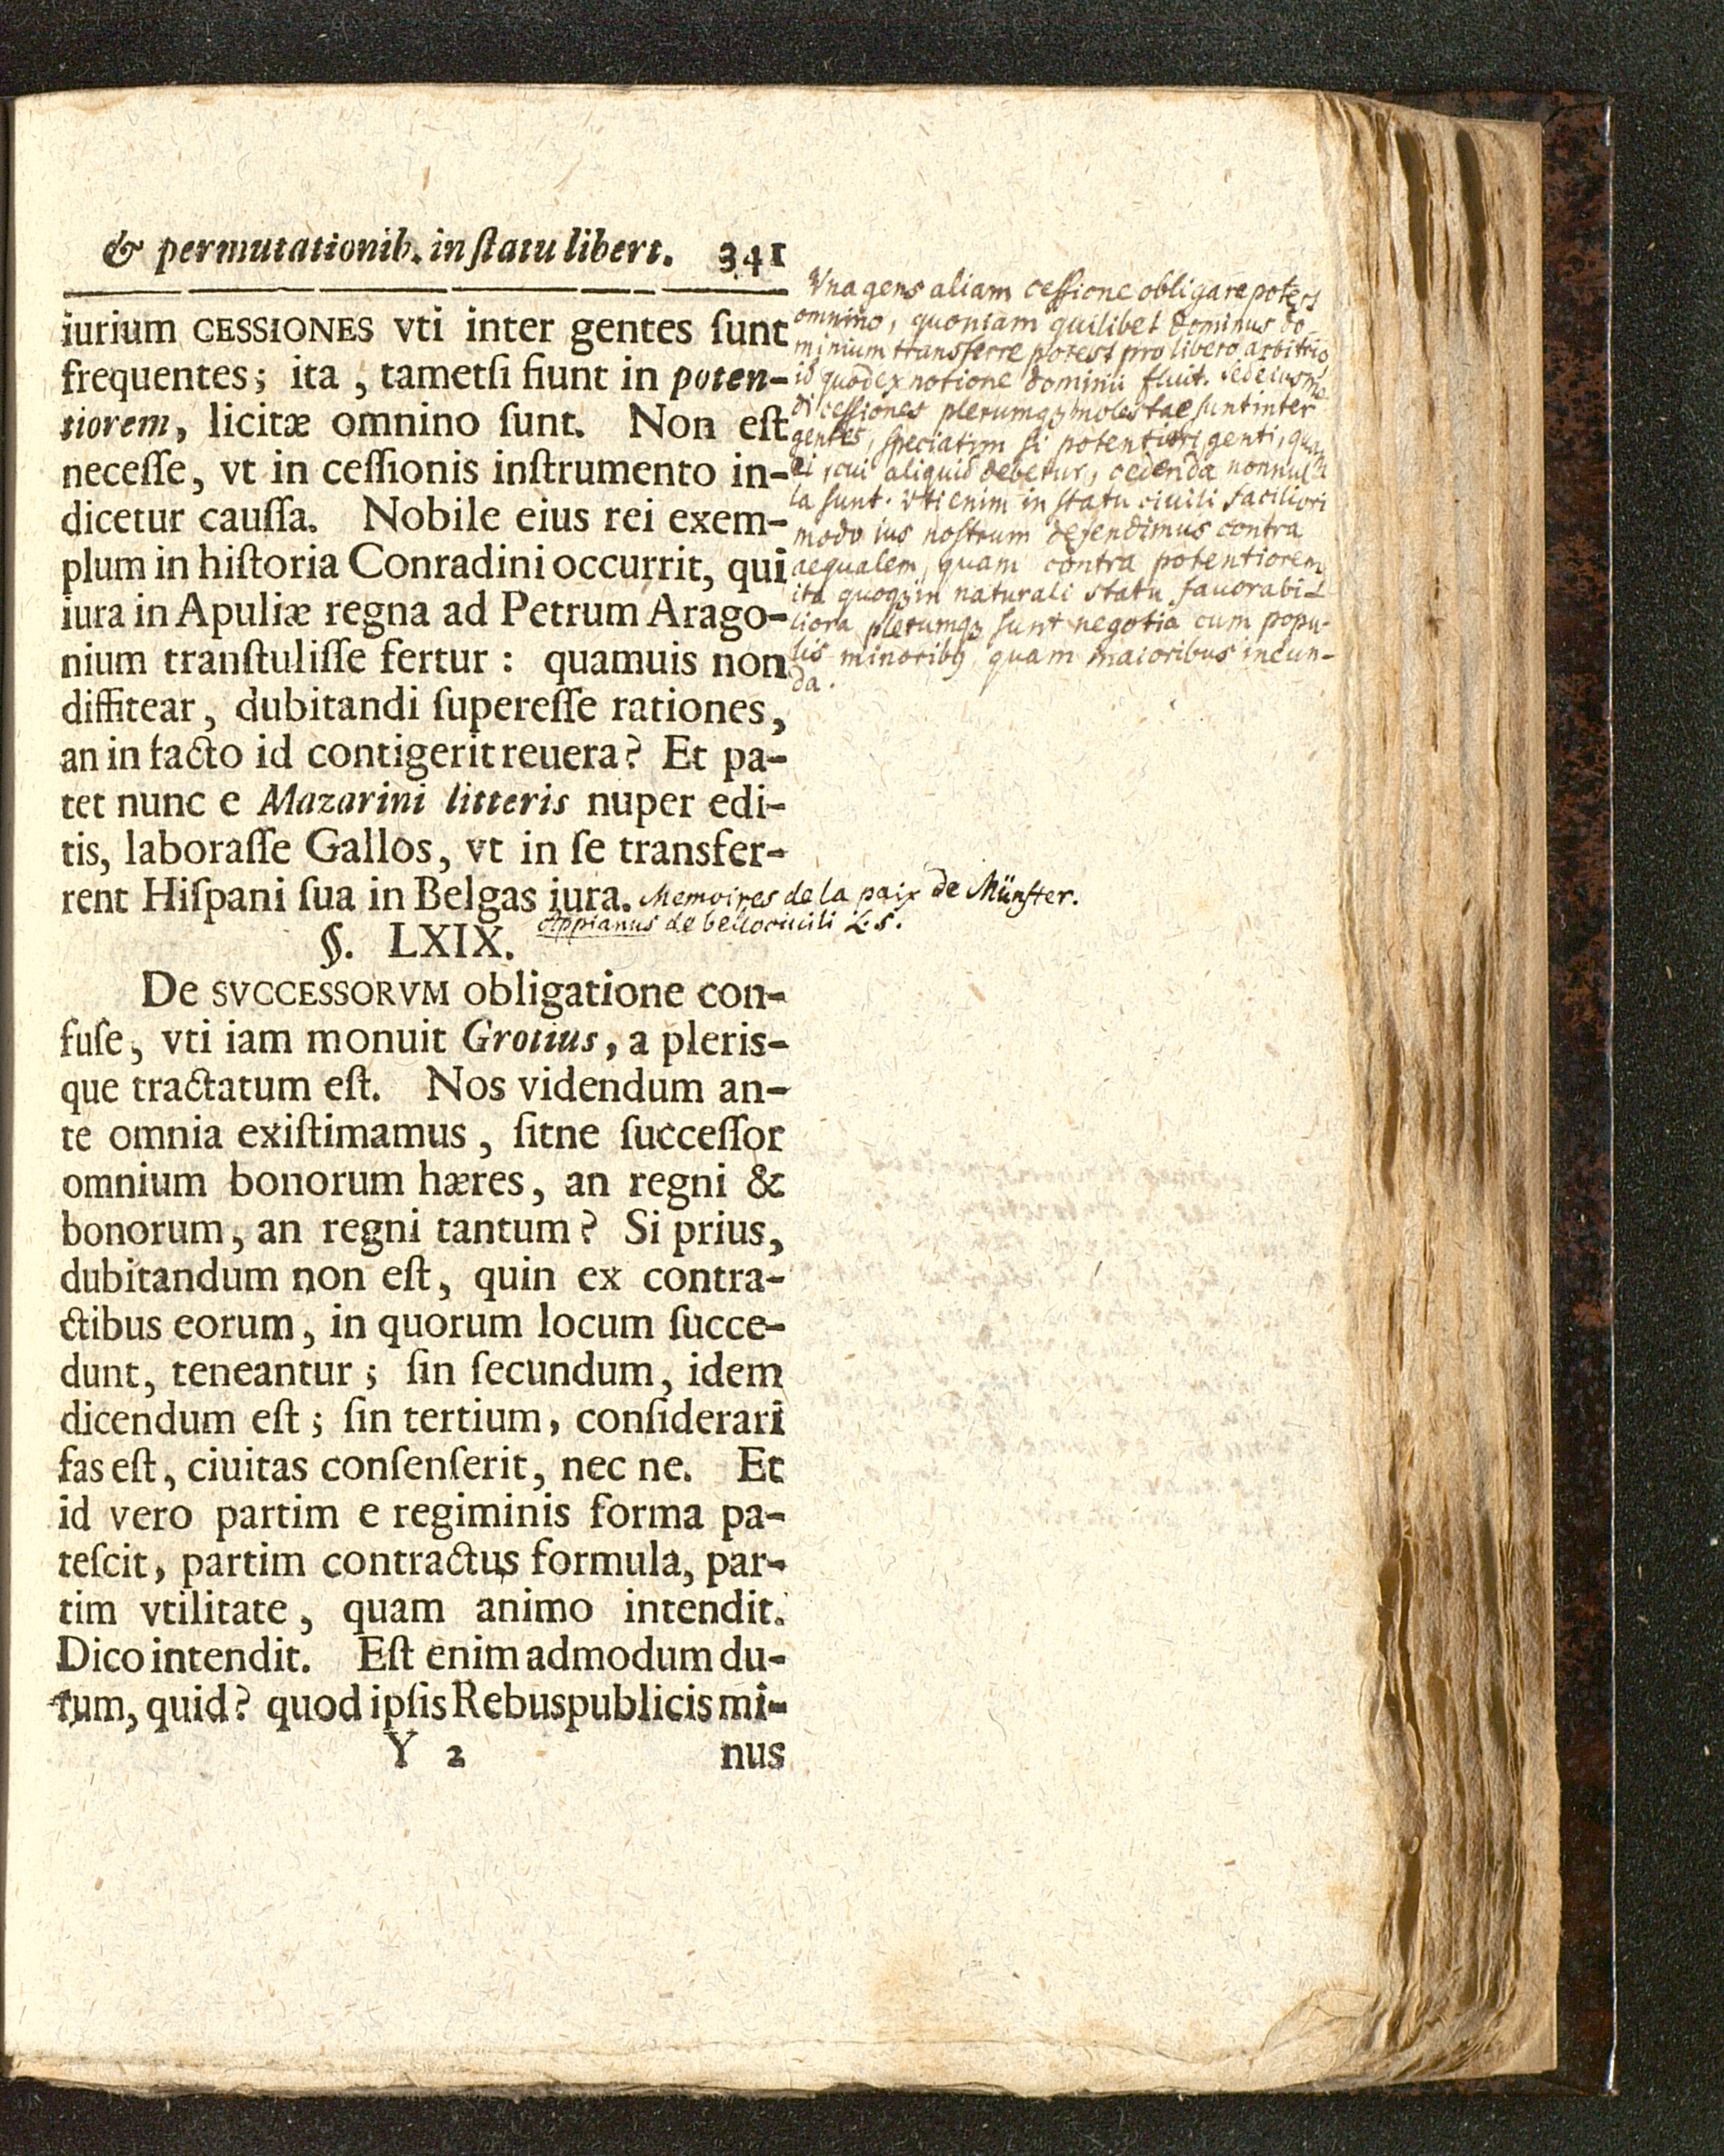 & permutationib. in ſtatu libert. 341
iurium CESSIONES vti inter gentes ſunt
frequentes; ita, tametſi fiunt in poten-
tiorem, licitæ omnino ſunt. Non eſt
neceſſe, vt in ceſſionis inſtrumento in-
dicetur cauſſa. Nobile eius rei exem-
plum in hiſtoria Conradini occurrit, qui
iura in Apuliæ regna ad Petrum Arago-
nium tranſtuliſſe fertur: quamuis non
diffitear, dubitandi ſupereſſe rationes,
an in facto id contigerit reuera? Et pa-
tet nunc e Mazarini litteris nuper edi-
tis, laboraſſe Gallos, vt in ſe transfer-
rent Hiſpani ſua in Belgas iura.
§. LXIX.
De SVCCESSORVM obligatione con-
fuſe, vti iam monuit Grotius, a pleris-
que tractatum eſt. Nos videndum an-
te omnia exiſtimamus, ſitne ſucceſſor
omnium bonorum hæres, an regni &
bonorum, an regni tantum? Si prius,
dubitandum non eſt, quin ex contra-
ctibus eorum, in quorum locum ſucce-
dunt, teneantur; ſin ſecundum, idem
dicendum eſt; ſin tertium, conſiderari
fas eſt, ciuitas conſenſerit, nec ne. Et
id vero partim e regiminis forma pa-
teſcit, partim contractus formula, par-
tim vtilitate, quam animo intendit.
Dico intendit. Eſt enim admodum du-
rum, quid? quod ipſis Rebuspublicis mi-
Y 2 nus
Vna gens aliam ceſſione obligare poteſt
omnino, quoniam quilibet dominus do-
minium transferre poteſt pro libero arbitrio
id quod ex notione dominii fluit. Sed eiusmo
di ceſſiones plerumqꝫ molestae sunt inter
gentes, ſpeciatim ſi potentiori genti, quam
ei, cui aliquid debetur, cedenda nonnul
la sunt. Vti enim in statu ciuili faciliori
modo ius noſtrum defendimus contra
aequalem, quam contra potentiorem
ita quoqꝫ in naturali statu fauorabi-
liora plerumqꝫ sunt negotia cum popu-
lis minoribꝰ quam maioribus ineun-
da.
Memoires de la paix de Münſter.
Appianus de bello ciuili L. 5.